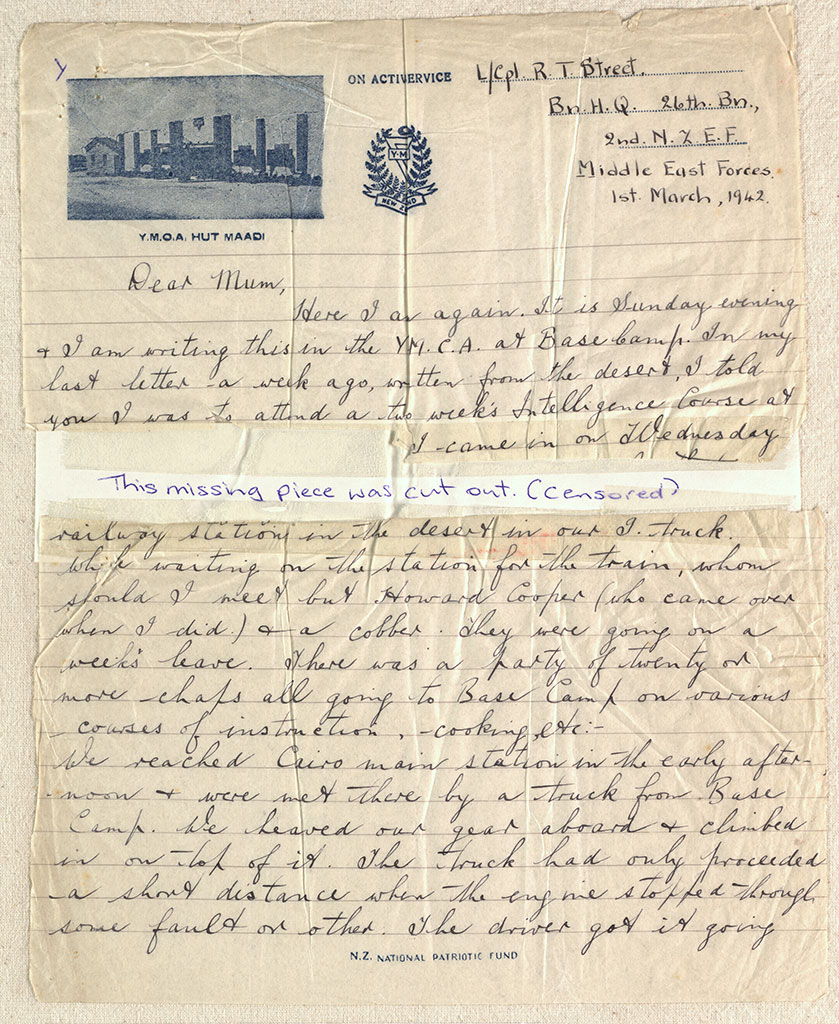 Y
ON ACTIVE SERVICE
L/Cpl. R. T. Street.
Bn. H. Q. 26th. Bn.,
2nd. N. Z. E. F.
Middle East Forces.
1st. March, 1942.
Y.M.
NEW Z
Y.M.C.A. HUT MAADI
Dear Mum,
Here I am again. It is Sunday evening
& I am writing this in the Y.M.C.A. at Base Camp. In my
last letter a week ago, written from the desert, I told
you I was to attend a two week's Intelligence Course at
I came in on Wednesday
This missing piece was cut out. (censored)
railway station in the desert in our I. truck.
While waiting on the station for the train, whom
should I meet but Howard Cooper (who came over
when I did.) & a cobber. They were going on a
week's leave. There was a party of twenty or
more chaps all going to Base Camp on various
courses of instruction, - cooking, etc:-
We reached Cairo main station in the early after-
-noon & were met there by a truck from Base
Camp. We heaved our gear aboard & climbed
in on top of it. The truck had only proceeded
a short distance when the engine stopped through
some fault or other. The driver got it going
N.Z. NATIONAL PATRIOTIC FUND